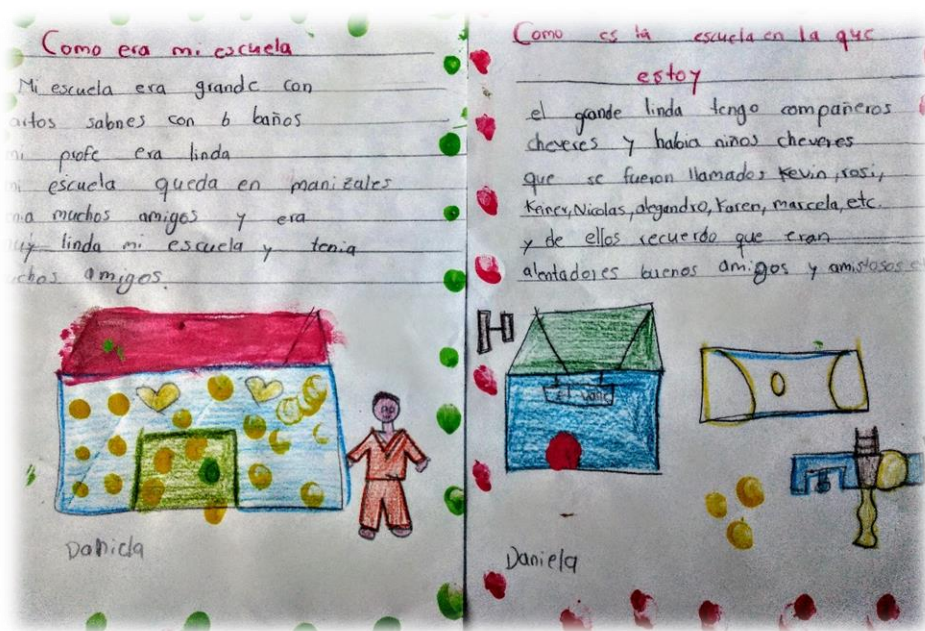 Como era mi escuela
Mi escuela era grande con
artos salones con 6 baños
mi profe era linda
mi escuela queda en manizales
nia muchos amigos y era
uy linda mi escuela y tenia
uchos amigos.
Daniela
Como es la escuela en la que
estoy
el grande linda tengo compañeros
cheveres y habia niños cheveres
que se fueron llamados Kevin, rosi,
Nicolas, alegandro, Karen, marcela, etc.
y de ellos recuerdo que eran
alentadores buenos amigos y amistosos e
Daniela